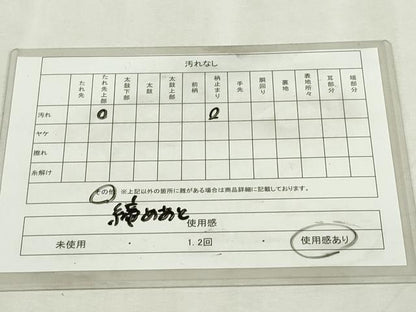 汚れなし
たれ先 たれ先上部 太鼓下部 太鼓 太鼓上部 前柄 柄止まり 手先 胴回り 裏地 表地所々 耳部分 端部分
汚れ ○ ○
ヤケ
擦れ
糸解け
その他 ※上記以外の箇所に難がある場合は商品詳細に記載しております。
締めあと
使用感
未使用 ・ 1.2回 ・ 使用感あり